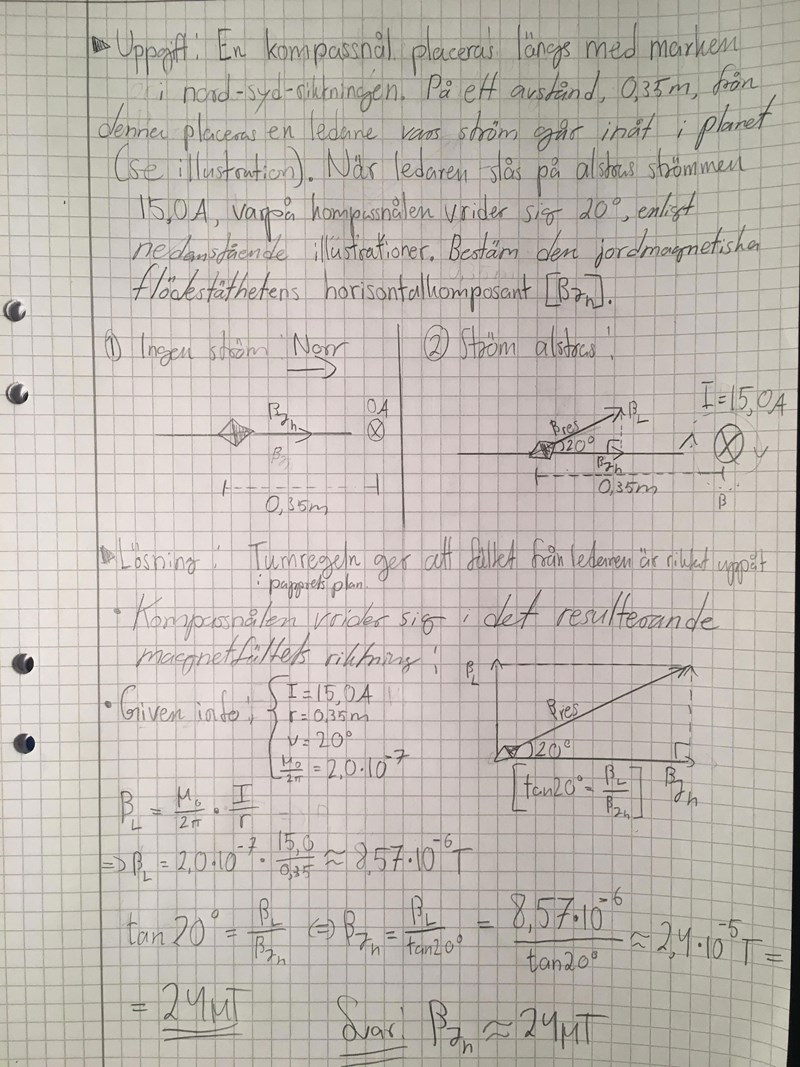 Uppgift: En kompassnål placeras längs med marken
i nord-syd-riktningen. På ett avstånd, 0,35m, från
denna placeras en ledare vars ström går inåt i planet
(se illustration). När ledaren slås på alstras strömmen
15,0A, varpå kompassnålen vrider sig 20°, enligt
nedanstående illustrationer. Bestäm den jordmagnetiska
flödestäthetens horisontalkomposant [B_Jh].
① Ingen ström: Norr
B_Jh
0A
0,35m
② Ström alstras:
I = 15,0A
B_L
B_res
20°
B_Jh
0,35m
B
Lösning: Tumregeln ger att fältet från ledaren är riktat uppåt
i papprets plan.
• Kompassnålen vrider sig i det resulterande
magnetfältets riktning:
• Given info: { I = 15,0A
r = 0,35m
v = 20°
μ₀/2π = 2,0·10⁻⁷
B_L
B_res
20°
B_Jh
[tan20° = B_L/B_Jh]
B_L = μ₀/2π · I/r
=> B_L = 2,0·10⁻⁷ · 15,0/0,35 ≈ 8,57·10⁻⁶ T
tan20° = B_L/B_Jh ⇔ B_Jh = B_L/tan20° = 8,57·10⁻⁶/tan20° ≈ 2,4·10⁻⁵ T =
= 24μT
Svar: B_Jh ≈ 24μT